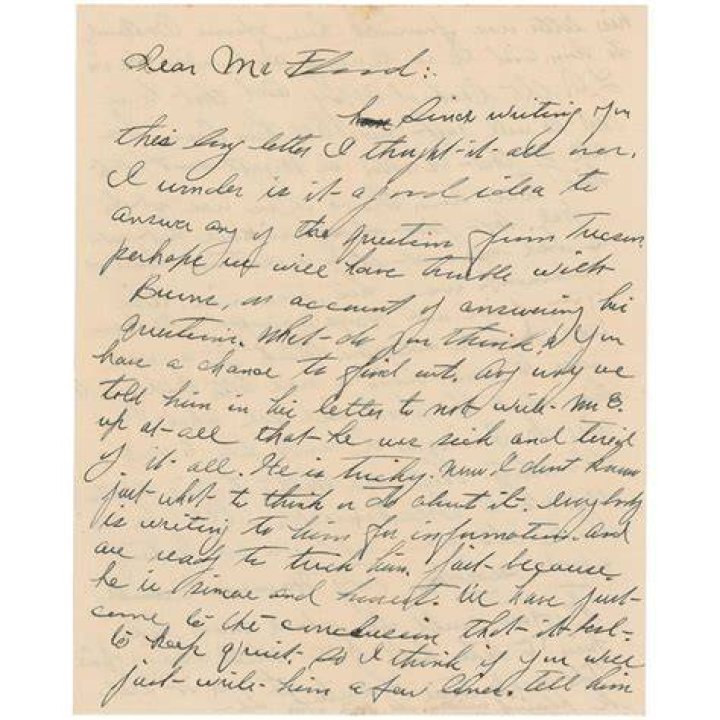 Dear Mr Flood:
Since writing you
this long letter I thought it all over.
I wonder is it a good idea to
answer any of the question from Tucson
perhaps we will have trouble with
Burns, on account of answering his
questions. What do you think? You
have a chance to find out. Any way we
told him in his letter to not write Mr E.
up at all that he was sick and tired
of it all. He is tricky. Now I dont know
just what to think or do about it. Everybody
is writing to him for information and
are ready to trick him. Just because
he is sincere and honest. We have just
come to the conclusion that it best
to keep quiet. So I think if you will
just write him a few lines. Tell him